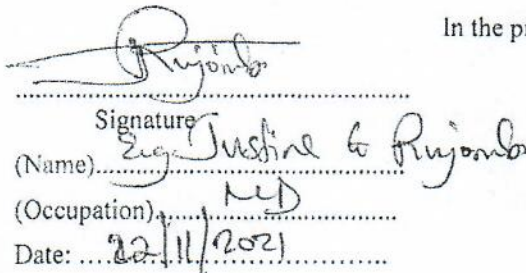 In the pr
Rujombo
Signature
(Name) Eng. Justine G Rujombo
(Occupation) MD
Date: 22/11/2021